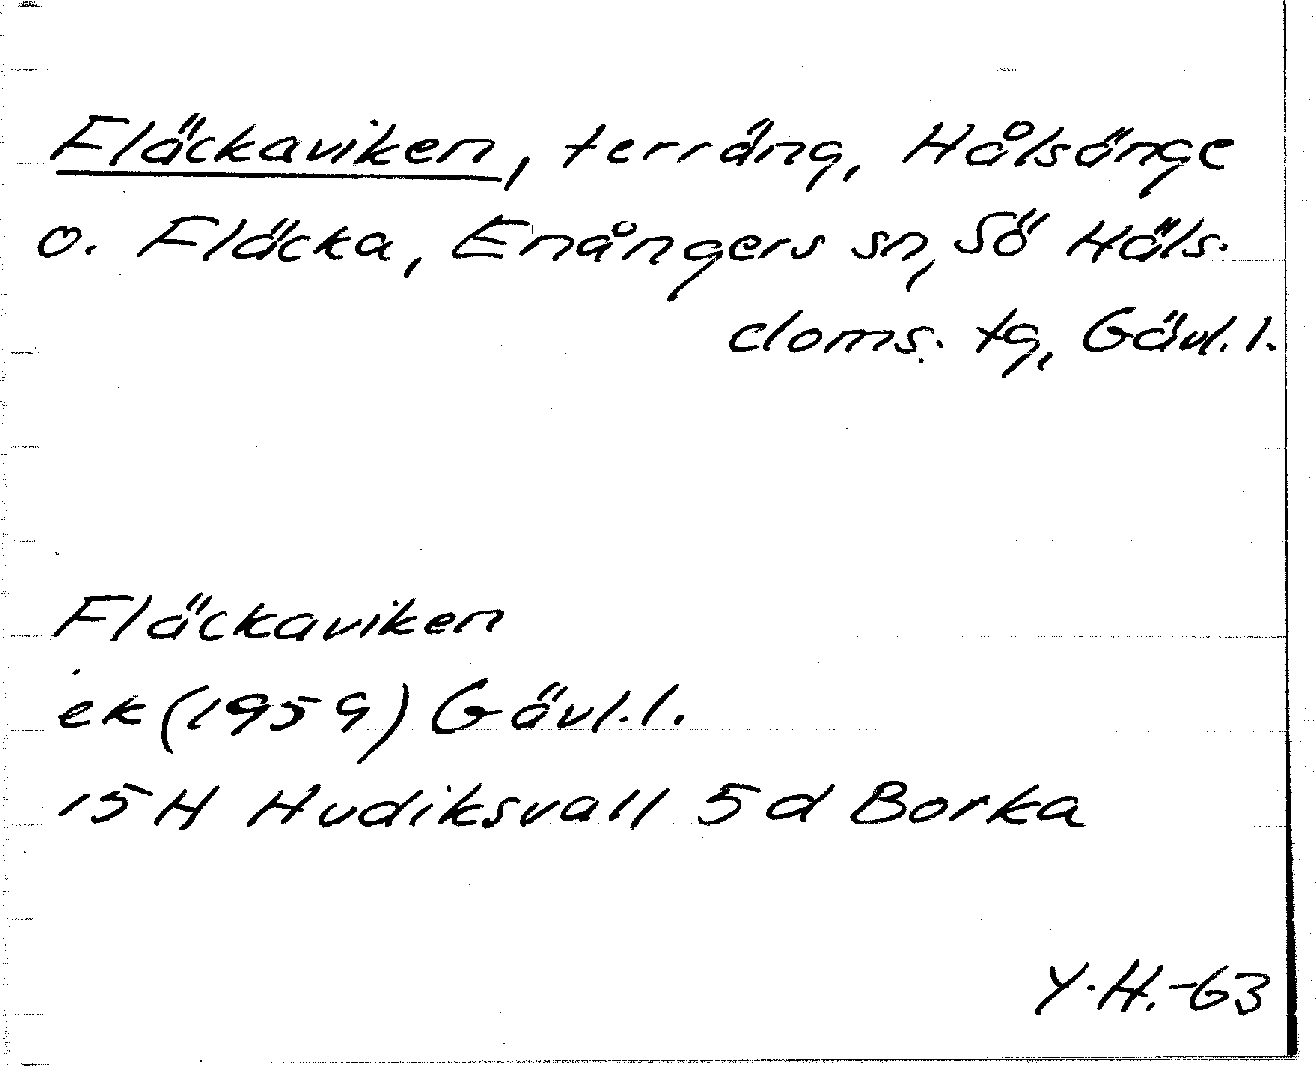 Fläckaviken, terräng, Hålsänge
o. Fläcka, Enångers sn, Sö Häls.
doms. tg, Gävl. l.
Fläckaviken
ek (1959) Gävl. l.
15 H Hudiksvall 5 d Borka
Y.H.-63